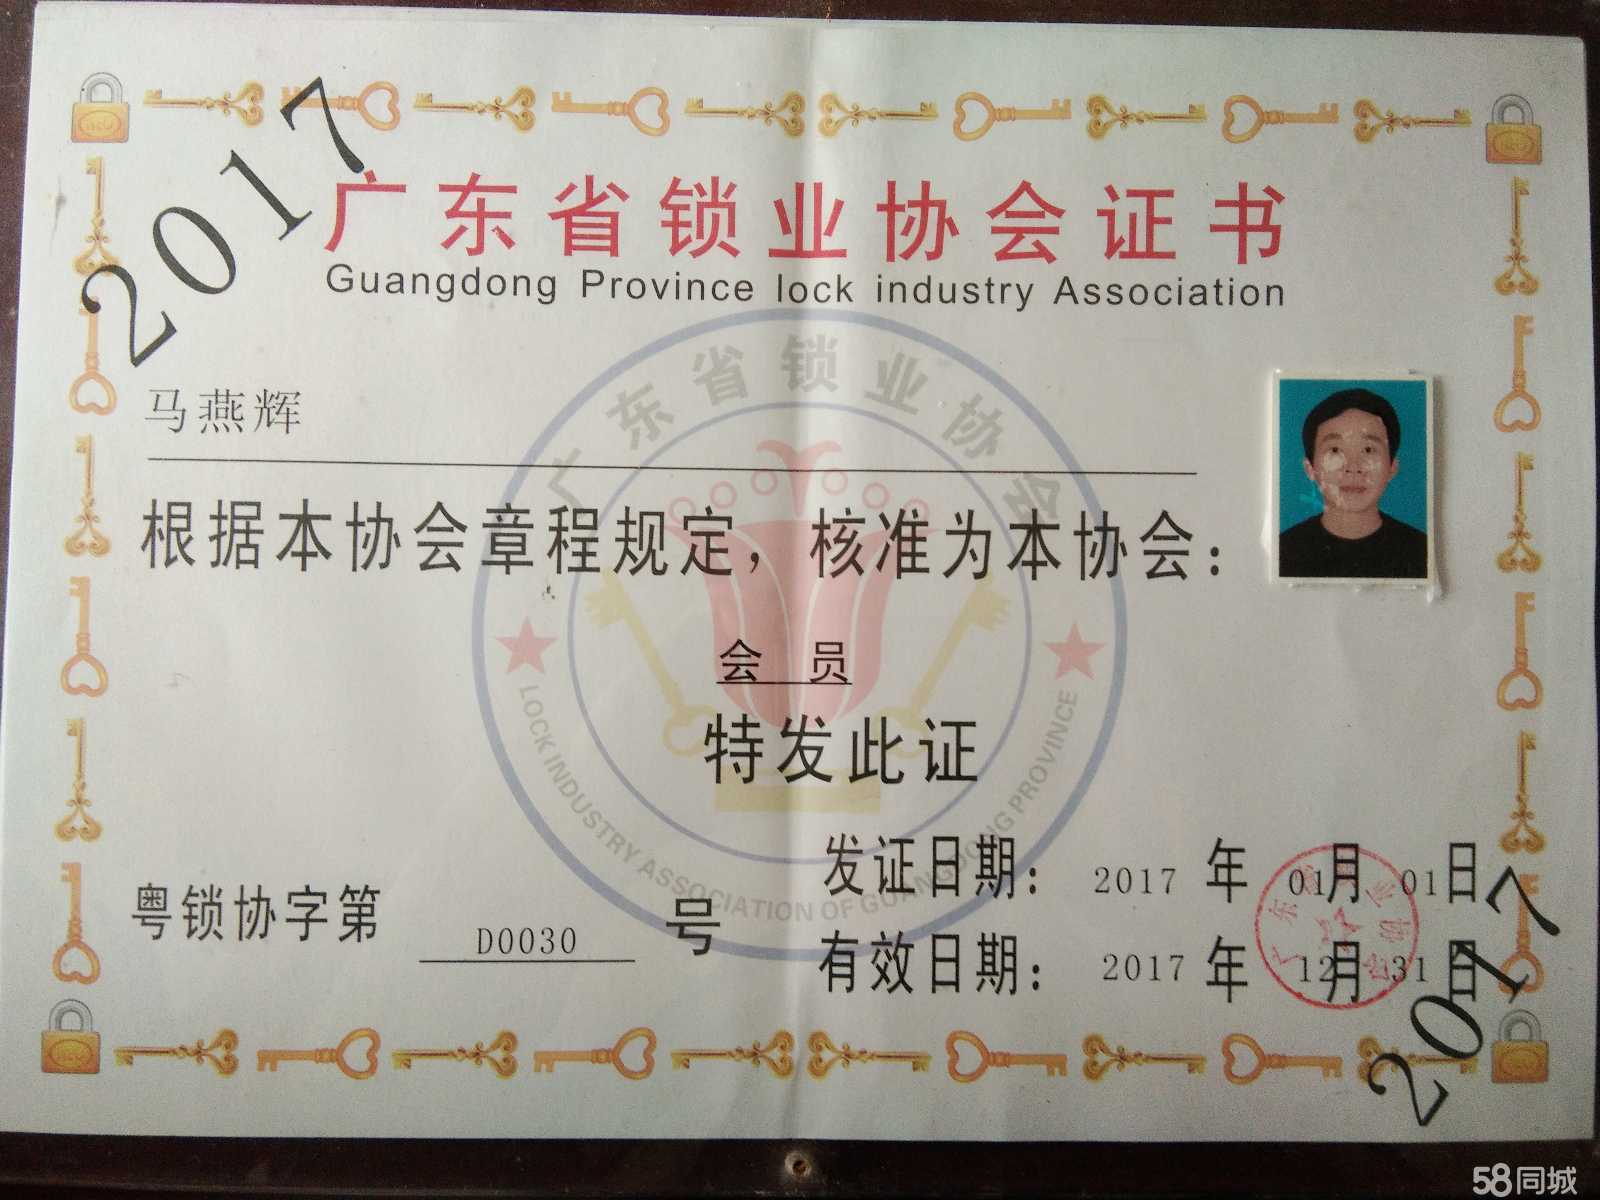 2017
广东省锁业协会证书
Guangdong Province lock industry Association
广东省锁业协会
马燕辉
根据本协会章程规定，核准为本协会：
会 员
特发此证
LOCK INDUSTRY ASSOCIATION OF GUANGDONG PROVINCE
发证日期： 2017 年 01月 01日
粤锁协字第 D0030 号
有效日期： 2017 年 12月 31日
2017
58同城